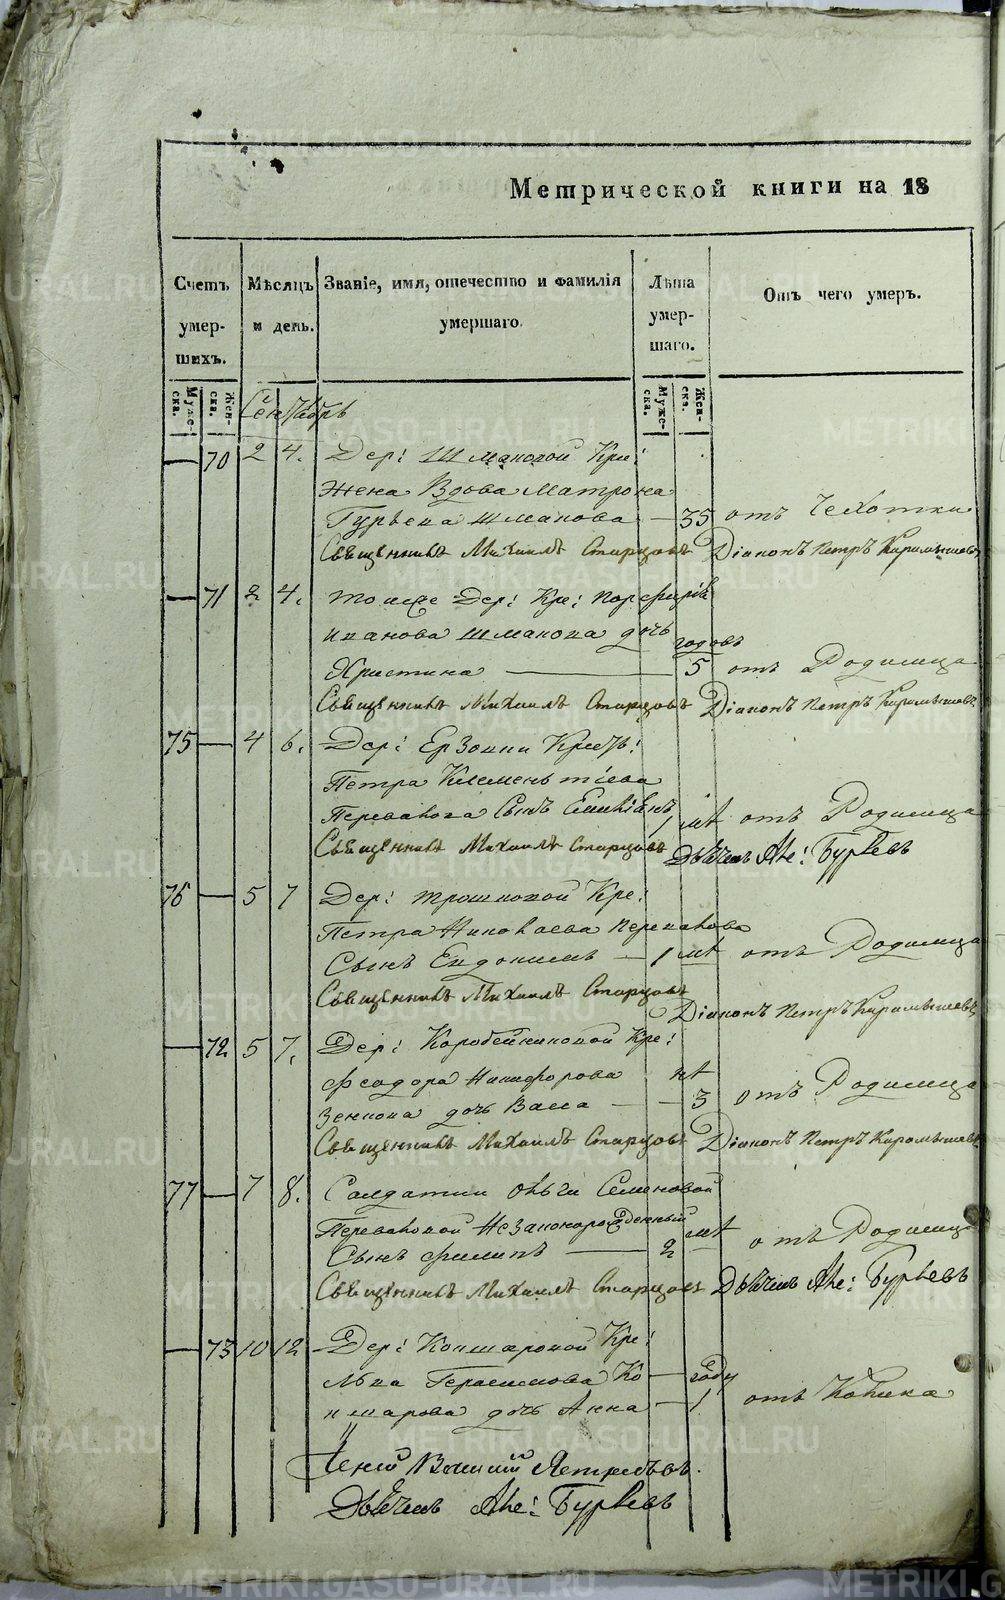 Метрической книги на 18
Счетъ умер- шихъ.
Мѣсяцъ и день.
Званіе, имя, отечество и фамилія умершаго.
Лѣта умер- шаго.
Отъ чего умеръ.
Муже- ска.
Жен- ска.
Муже- ска.
Жен- ска.
Сентябрь
70 2 4. Дер: Шмаковой Кре:
Жена Вдова Матрона
Гурьева Шмакова — 35 отъ Чехотки
Священникъ Михаилъ Старцовъ Діаконъ Петръ Карамышевъ
71 2 4. тоиже Дер: Кре: Порфирія
Иванова Шмакова дочь годовъ
Христина — 5 отъ Родимца
Священникъ Михаилъ Старцовъ Діаконъ Петръ Карамышевъ
75 — 4 6. Дер: Ерзовки Крест:
Петра Клементіева
Перевалова Сынъ 1 отъ Родимца
Священникъ Михаилъ Старцовъ Дьячекъ Але: Гурьевъ
76 — 5 7 Дер: Трошковой Кре:
Петра Николаева Перевалова
Сынъ Евдокимъ — 1 отъ Родимца
Священникъ Михаилъ Старцовъ
Діаконъ Петръ Карамышевъ
72 5 7. Дер: Коробейниковой Кре:
Феодора Никифорова
Зенкова дочь Васса — 3 отъ Родимца
Священникъ Михаилъ Старцовъ Діаконъ Петръ Карамышевъ
77 — 7 8. Солдатки Семеновой
Переваловой Незаконорожденный
Сынъ Филипъ — 2 отъ Родимца
Священникъ Михаилъ Старцовъ Дьячекъ Але: Гурьевъ
73 10 12 Дер: Коншаровой Кре:
Льва Герасимова Ко — году
ншарова дочь Анна — 1 отъ Кашля
Іерей Василий Ястребовъ.
Дьячекъ Але: Гурьевъ
METRIKI.GASO-URAL.RU